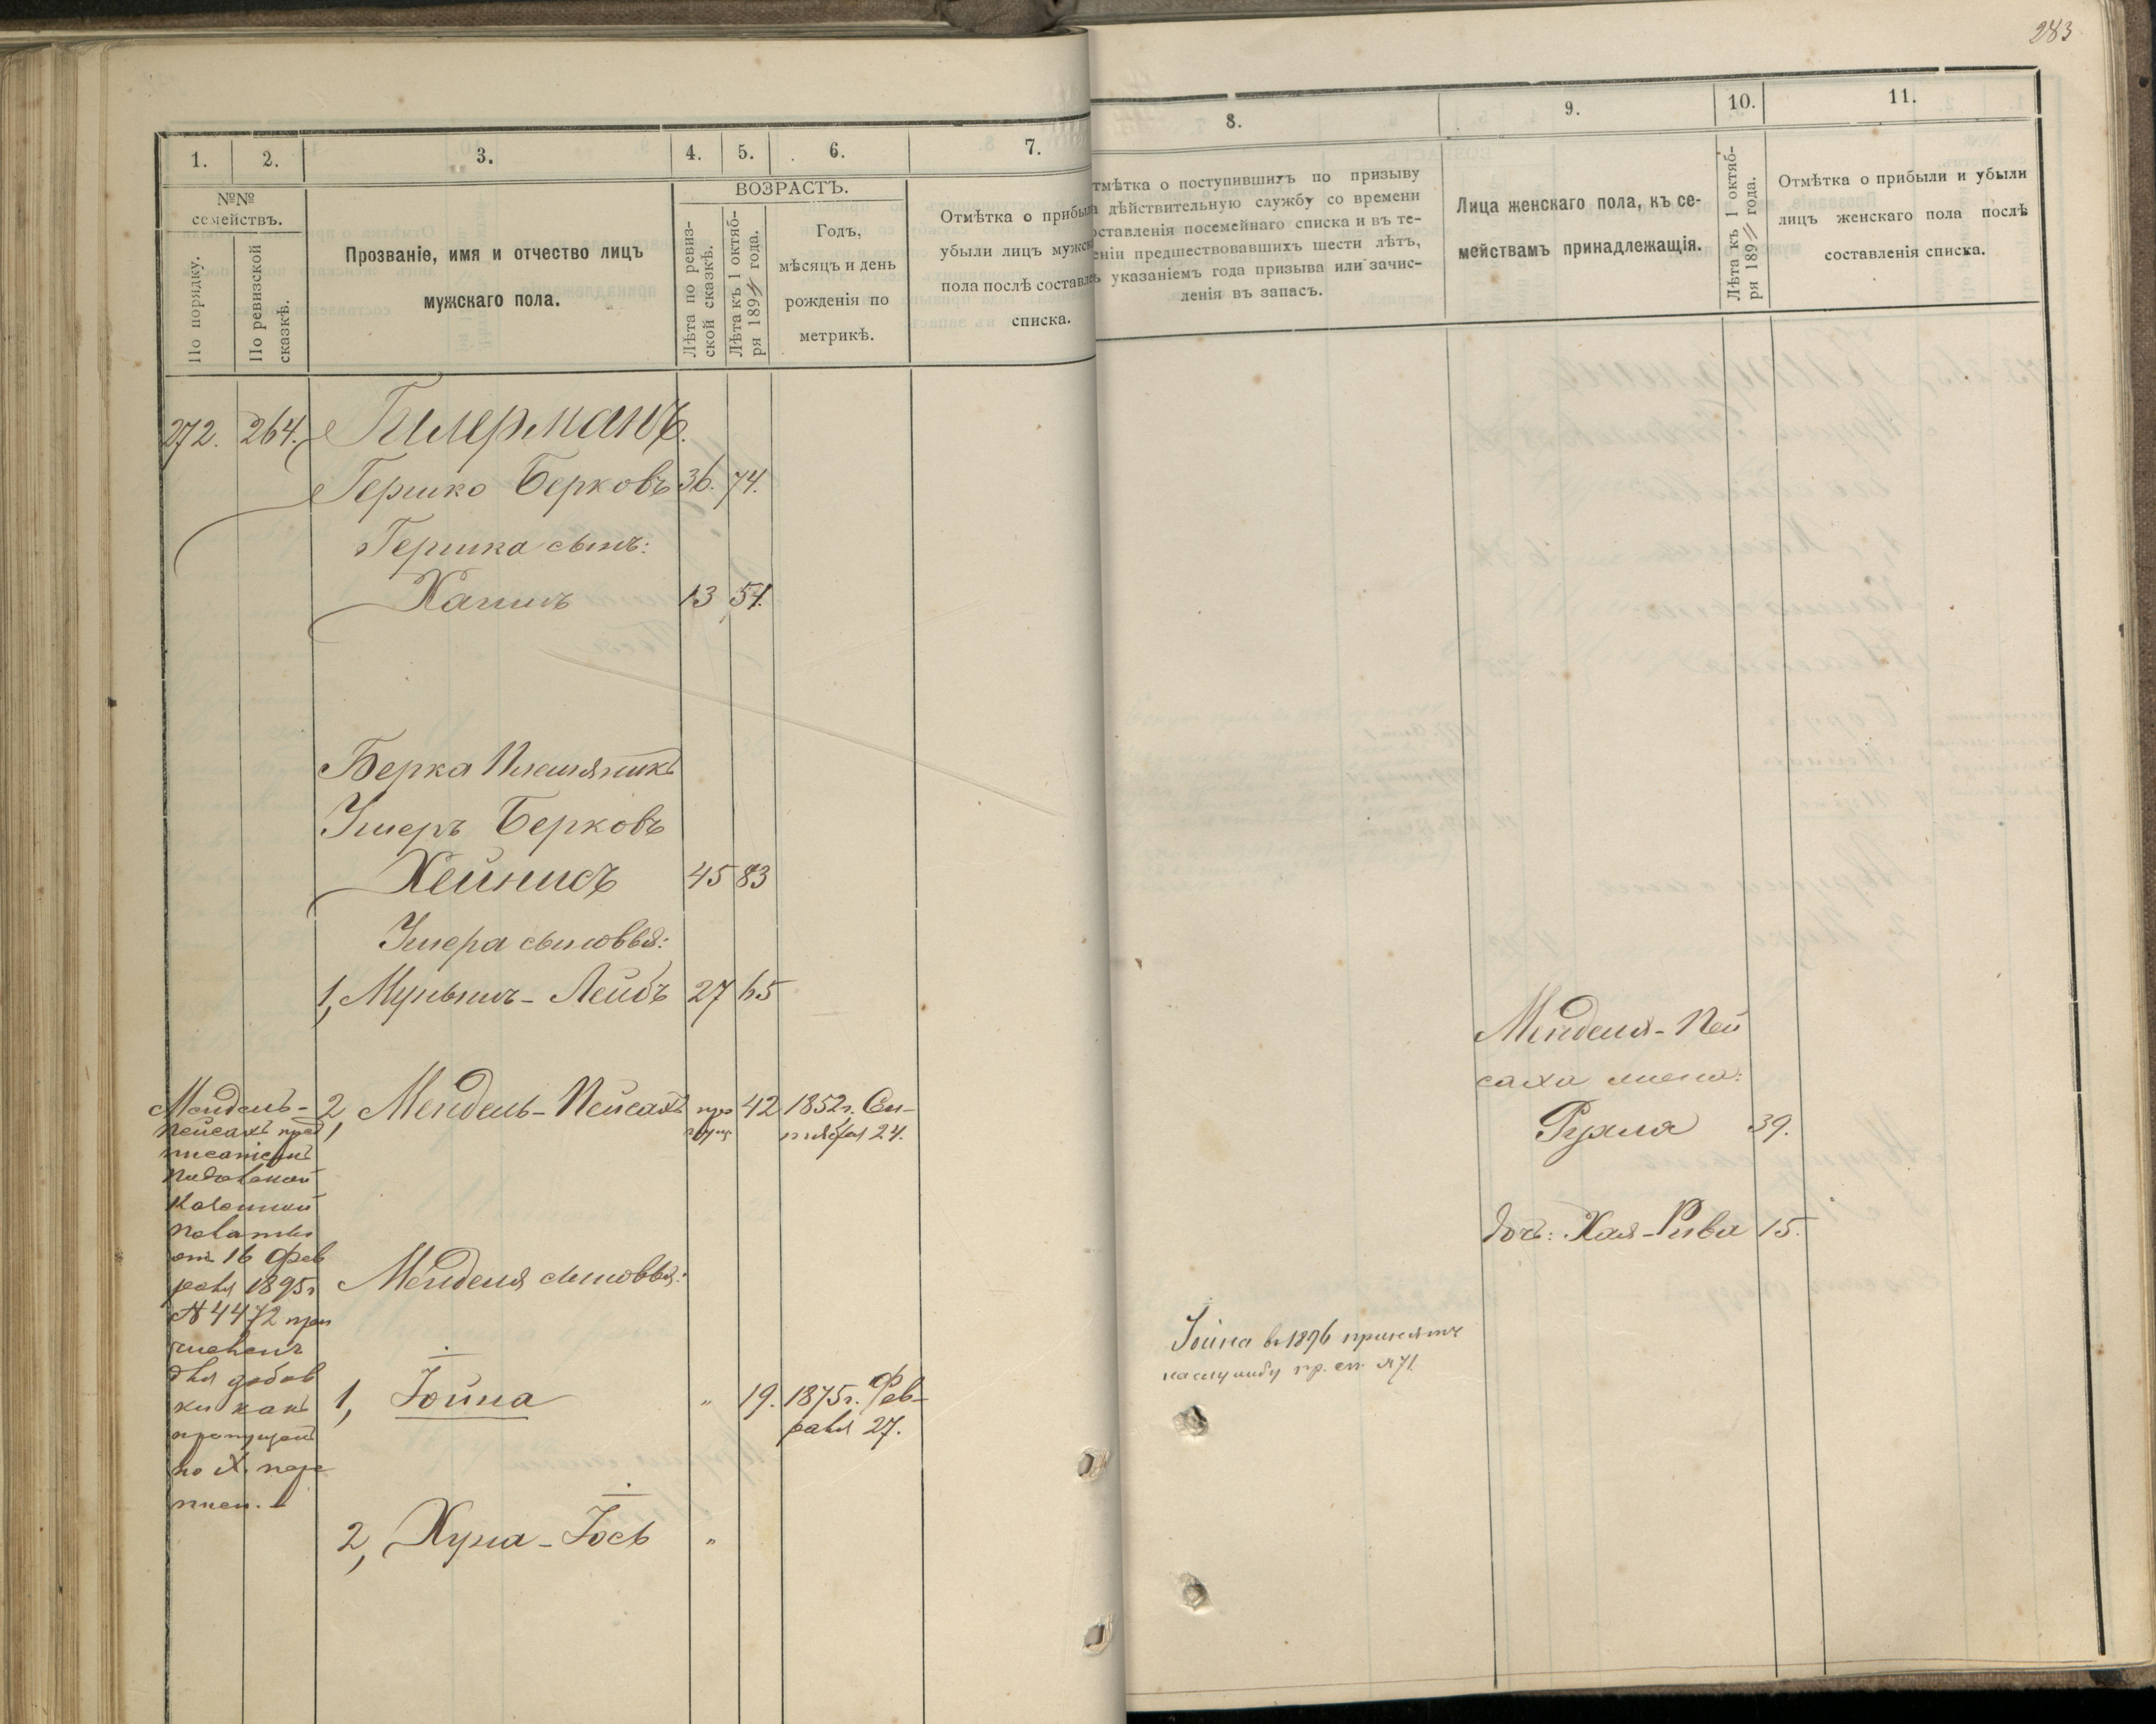 283
1.
2.
3.
4.
5.
6.
7.
№№
семействъ.
По порядку.
По ревизской
сказкѣ.
Прозваніе, имя и отчество лицъ
мужскаго пола.
ВОЗРАСТЪ.
Лѣта по ревиз-
ской сказкѣ.
Лѣта къ 1 октяб-
ря 189 года.
Годъ,
мѣсяцъ и день
рожденія по
метрикѣ.
Отмѣтка о прибы
убыли лицъ мужск
пола послѣ составле
списка.
8.
9.
10.
11.
тмѣтка о поступившихъ по призыву
а дѣйствительную службу со времени
оставленія посемейнаго списка и въ те-
еніи предшествовавшихъ шести лѣтъ,
ъ указаніемъ года призыва или зачис-
ленія въ запасъ.
Лица женскаго пола, къ се-
мействамъ принадлежащія.
Лѣта къ 1 октяб-
ря 189 года.
Отмѣтка о прибыли и убыли
лицъ женскаго пола послѣ
составленія списка.
272. 264. Гилерманъ.
Гершко Берковъ 36. 74.
Гершка сынъ:
Хаимъ 13 51.
Берка Племянникъ
Умеръ Берковъ
Хейнисъ 45 83
Умера сыновья:
1, Мунышъ-Лейбъ 27 65
2, Мендель-Пейсахъ про 42 1852г. Сен-
пущ. тября 24.
Мендель-
Пейсахъ пред
писаніемъ
Подольской
Казенной
Палаты
отъ 16 Фев
раля 1895г
№ 4472 при
численъ
для добав
ки какъ
пропущен
по X. пере
писи.-
Менделя сыновья:
1, Іойна " 19. 1875г. Фев-
раля 27.
2, Хуна-Іось "
Іойна въ 1896 принятъ
на службу пр. сп. №71.
Менделя-Пей
саха жена:
Рухля 39.
дочь: Хая-Рива 15.